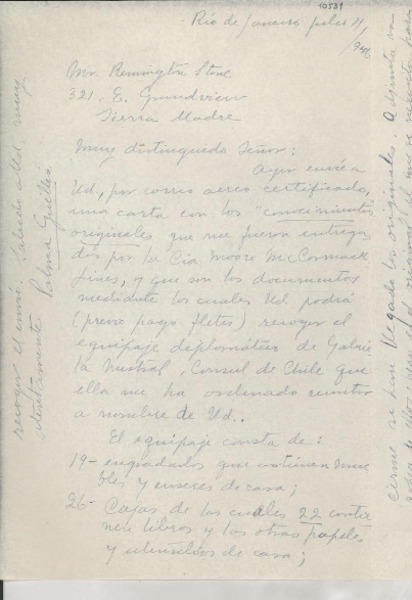 10531
Río de Janeiro julio 21
/946
Mr. Remington Stone
321. E. Grandview
Sierra Madre
Muy distinguido Señor:
Ayer envié a
Ud, por correo aereo certificado,
una carta con los "conocimientos
originales que me fueron entrega
dos por la Cía Moore Mc Cormack
Lines, y que son los documentos
mediante los cuales Ud podrá
(previo pago fletes) recoger el
equipaje diplomático de Gabrie
la Mistral, Consul de Chile que
ella me ha ordenado remitir
a nombre de Ud..
El equipaje consta de:
19- engradados que contienen mue
bles y enseres de casa;
26- Cajas de las cuales 22 contie
nen libros y las otras papeles
y utensilios de casa;
recoger el envío. Saludo a Ud muy
atentamente Palma Guillén
cirme si han llegado los originales. Adjunta va